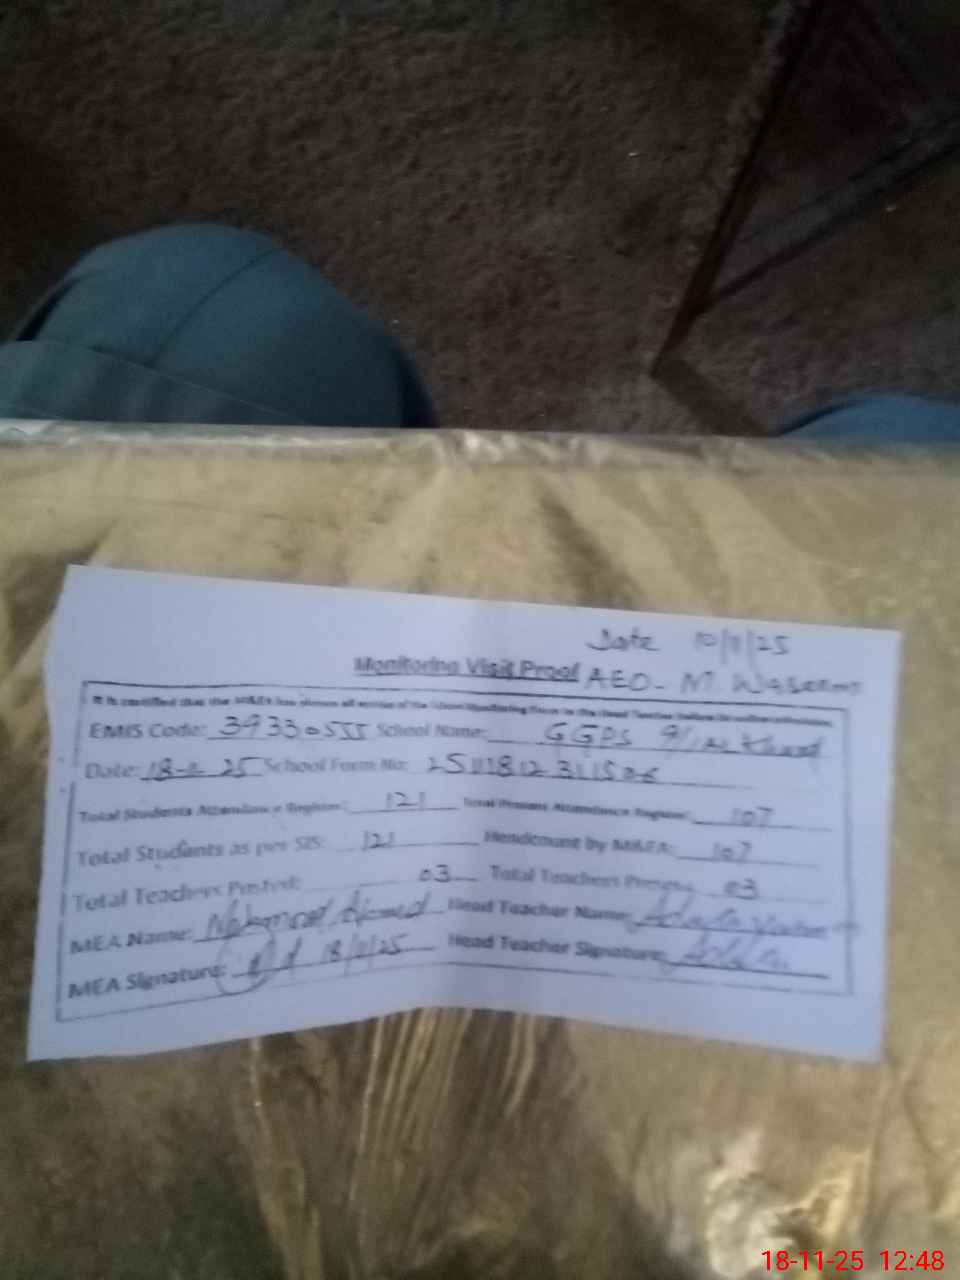 Date 10/11/25
Monitoring Visit Proof AEO- M. Waseem
It is certified that the MEA has shown all entries of the School Monitoring Form to the Head Teacher before its online submission.
EMIS Code: 39330555 School Name: GGPS
Date: 18-11-25 School Form No: 25111812311506
Total Students Attendance Register: 121 Total Present Attendance Register: 107
Total Students as per SIS: 121 Headcount by MEA: 107
Total Teachers Posted: 03 Total Teachers Present: 03
MEA Name: Ahmed Head Teacher Name:
MEA Signature: 18/11/25 Head Teacher Signature:
18-11-25 12:48